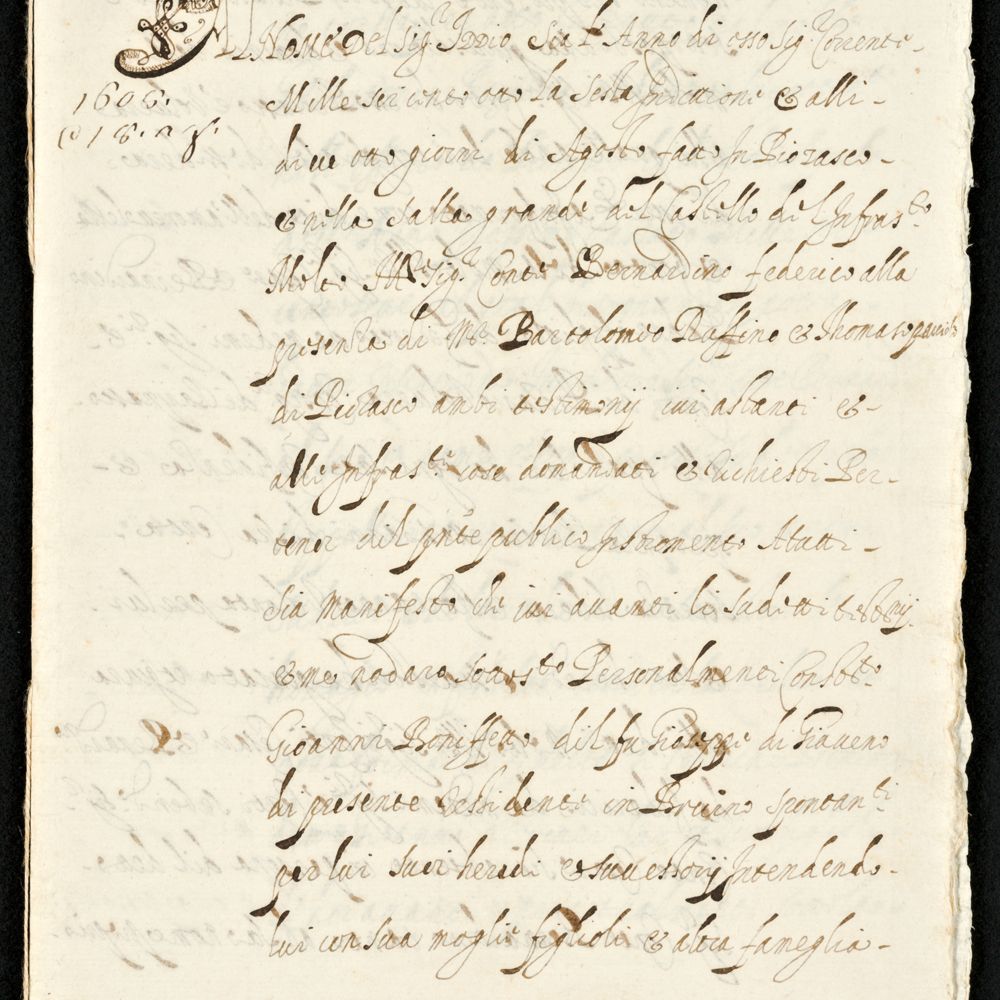 Nome del sig.r Iddio sia l'Anno di esso sig.r Corrente
1608.
Mille sei cento otto la sesta Inditione & alli -
di ve otto giorni di Agosto fatto In Piozasco -
& nella salla grande del Castello del Infras.to
Molto Ill.re Sig.r Conte Bernardino federico alla
presenza di M.r Bartolomeo Ruffino & Thomaso
di Piozasco ambi testimonij ivi astanti & -
alle Infras.te cose domandati & richiesti Per -
tenor del pnte publico Instromento A tutti -
sia manifesto che ivi avanti li sudetti test.nij
& me nodaro sotto s.to Personalmenti Constt.o
Gioanni Boniffetto dil fu Gioseppe di Giaveno
di presente ressidente in Bruino spontan.ti
per lui suoi heredi & sucessorij Intendendo -
lui con sua moglie figlioli & altra fameglia -